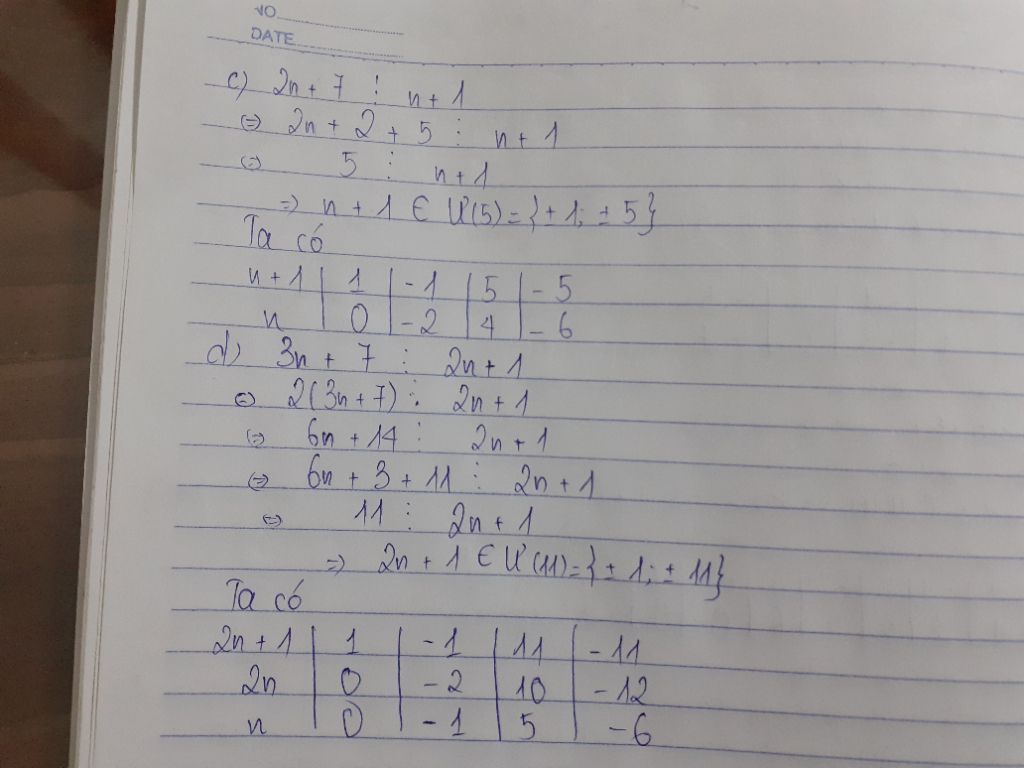 NO
DATE
c) 2n + 7 ⋮ n + 1
⇔ 2n + 2 + 5 ⋮ n + 1
⇔ 5 ⋮ n + 1
⇒ n + 1 ∈ Ư(5) = {± 1; ± 5}
Ta có
n + 1 | 1 | - 1 | 5 | - 5
n | 0 | - 2 | 4 | - 6
d) 3n + 7 ⋮ 2n + 1
⇔ 2(3n + 7) ⋮ 2n + 1
⇔ 6n + 14 ⋮ 2n + 1
⇔ 6n + 3 + 11 ⋮ 2n + 1
⇔ 11 ⋮ 2n + 1
⇒ 2n + 1 ∈ Ư(11) = {± 1; ± 11}
Ta có
2n + 1 | 1 | - 1 | 11 | - 11
2n | 0 | - 2 | 10 | - 12
n | 0 | - 1 | 5 | - 6